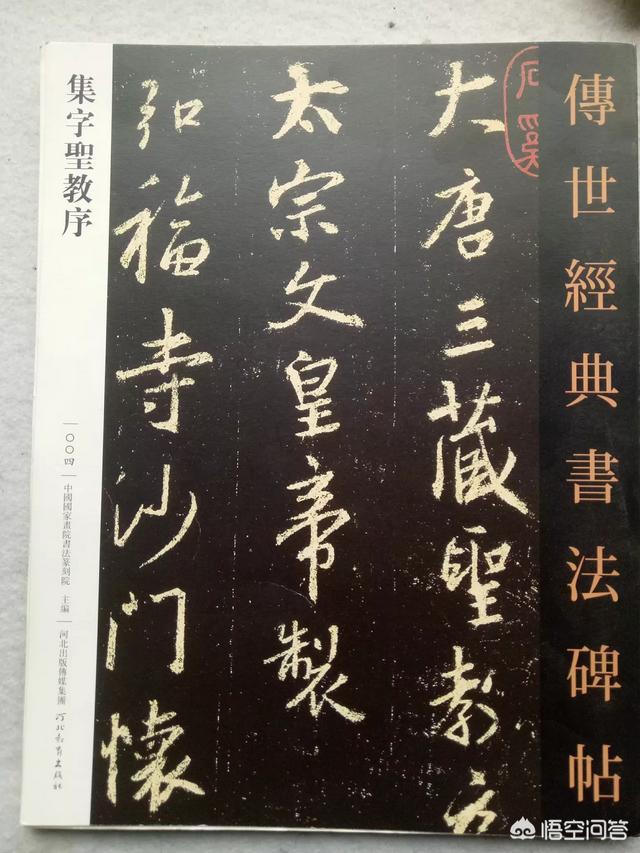 傳世經典書法碑帖
大唐三藏聖教序
太宗文皇帝製
弘福寺沙門懷
集字聖教序
〇〇四
中國國家畫院書法篆刻院 主編
河北出版傳媒集團
河北教育出版社
悟空问答